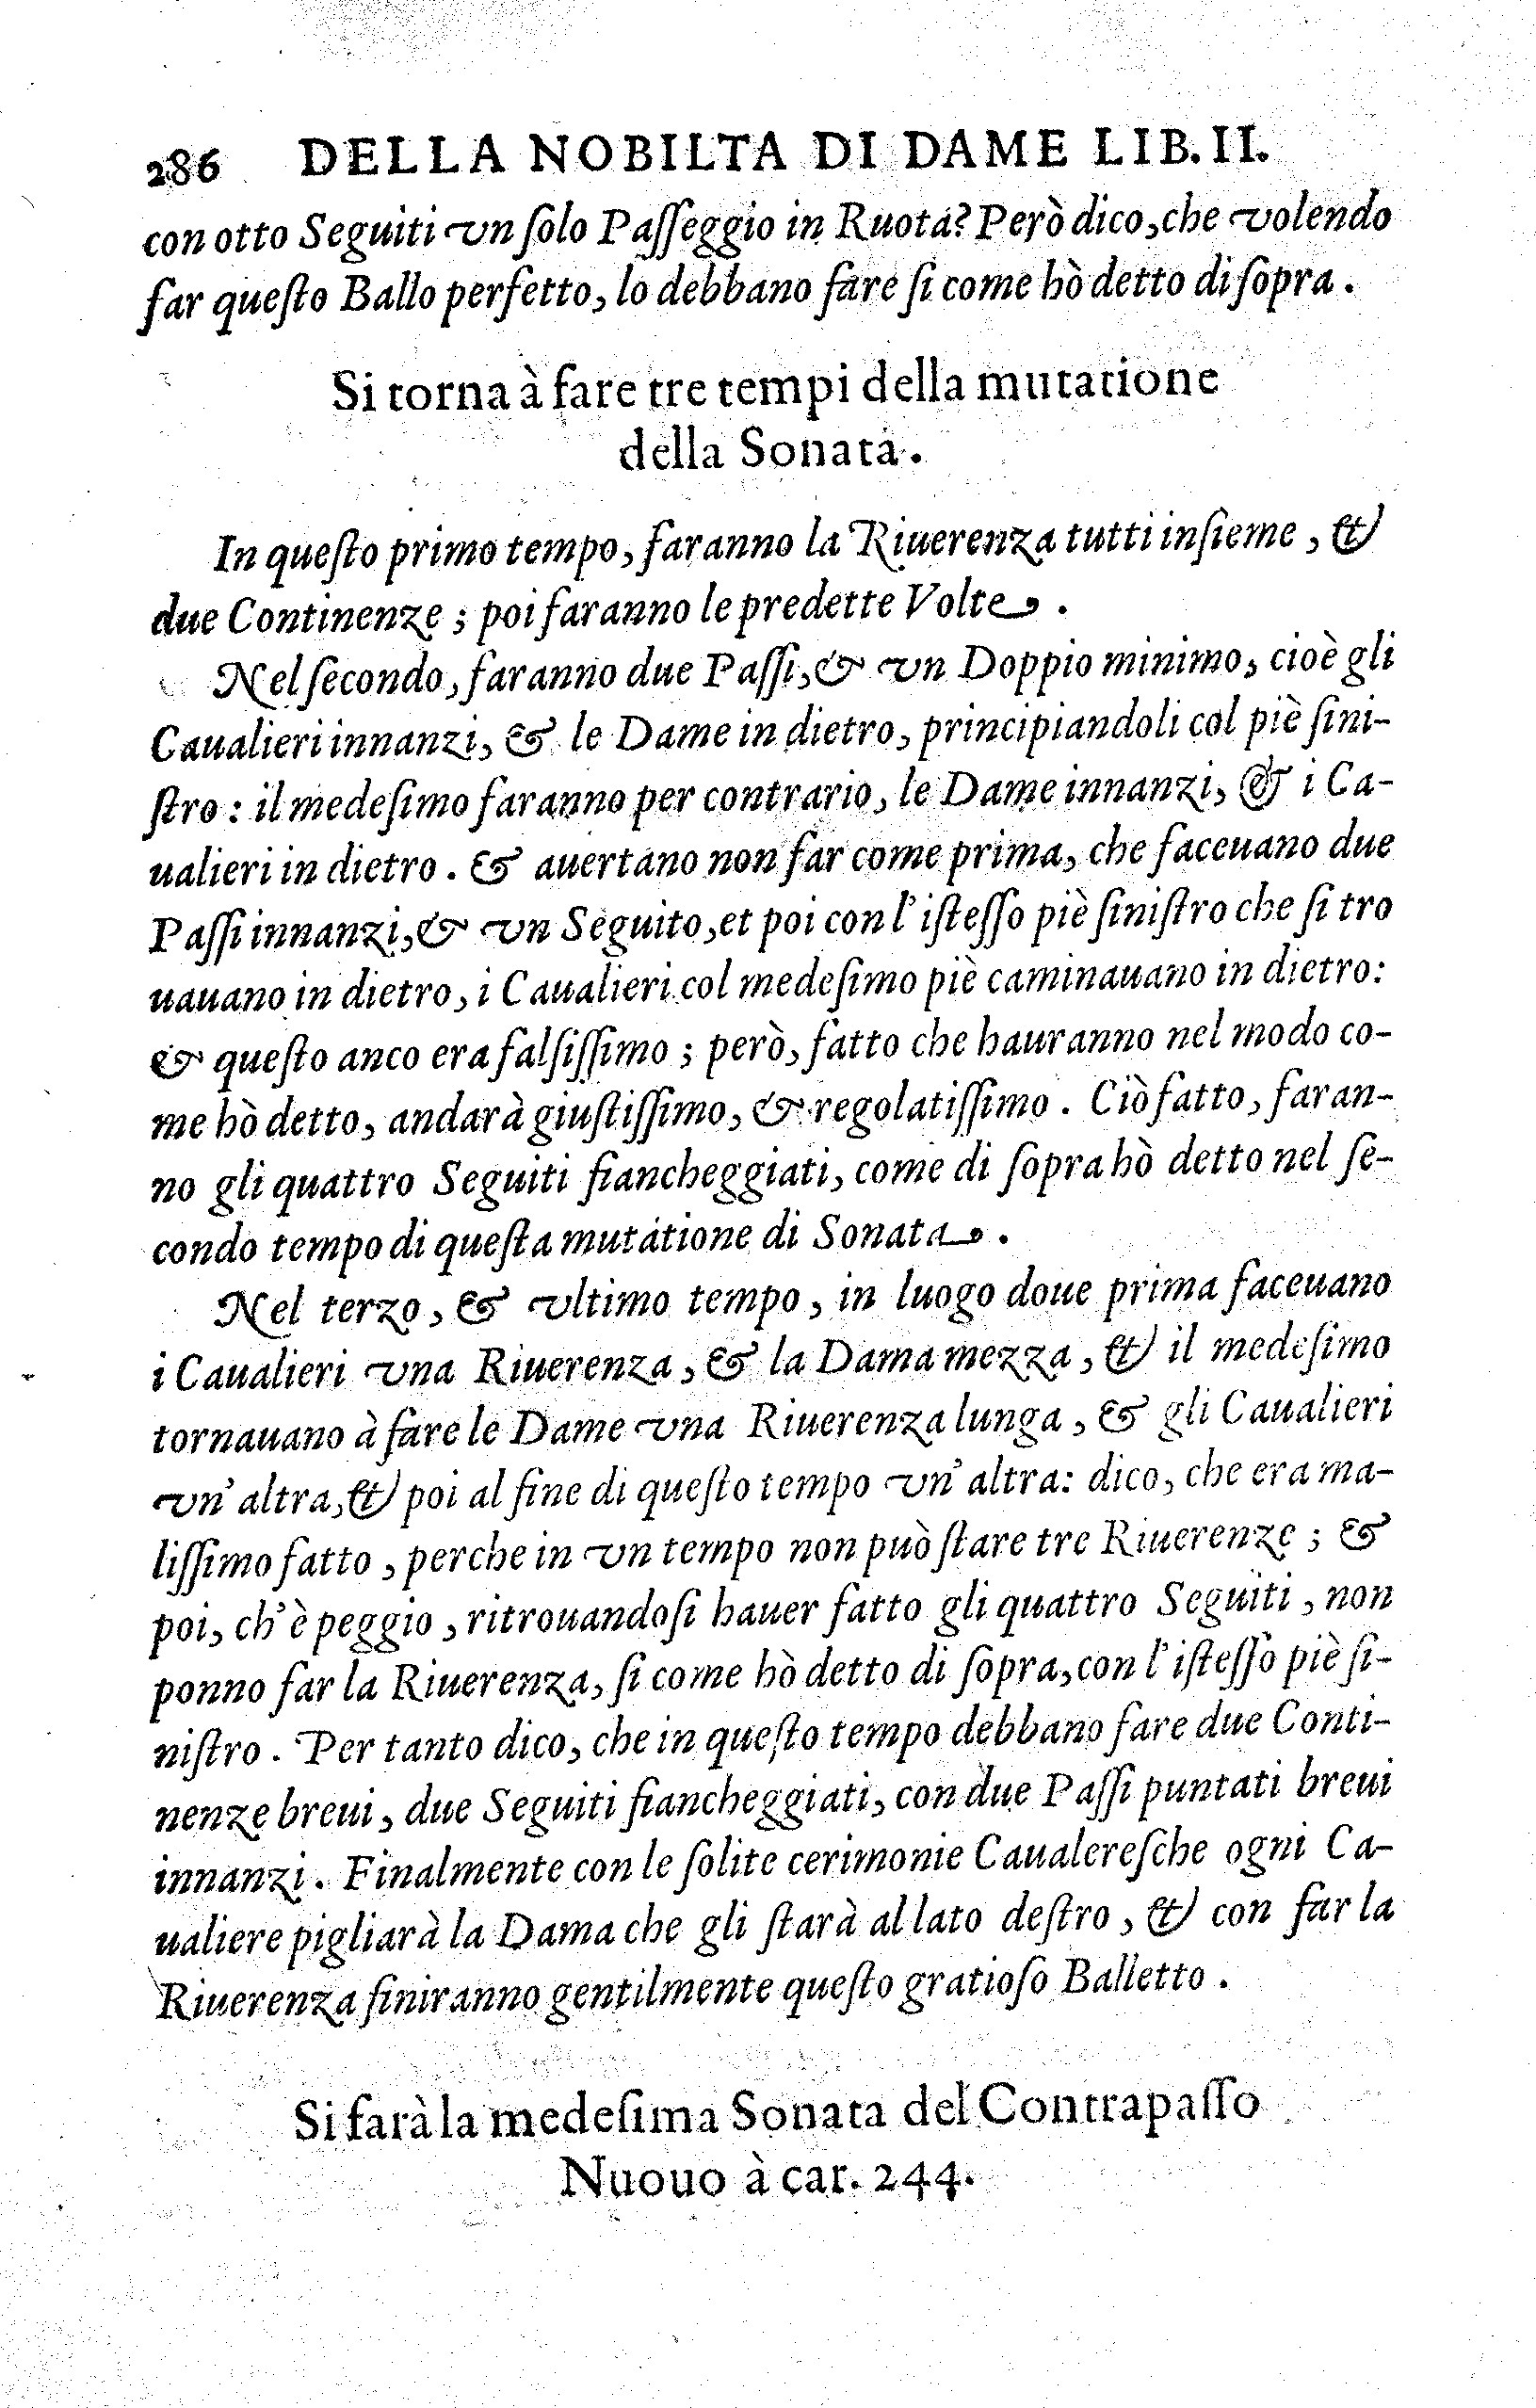 286 DELLA NOBILTA DI DAME LIB. II.
con otto Seguiti vn ſolo Paſſeggio in Ruota? Però dico, che volendo
far queſto Ballo perfetto, lo debbano fare ſi come hò detto di ſopra.
Si torna à fare tre tempi della mutatione
della Sonata.
In queſto primo tempo, faranno la Riuerenza tutti inſieme, &
due Continenze; poi faranno le predette Volte.
Nel ſecondo, faranno due Paſſi, & vn Doppio minimo, cioè gli
Caualieri innanzi, & le Dame in dietro, principiandoli col piè ſini-
ſtro: il medeſimo faranno per contrario, le Dame innanzi, & i Ca-
ualieri in dietro. & auertano non far come prima, che faceuano due
Paſſi innanzi, & vn Seguito, et poi con l'iſteſſo piè ſiniſtro che ſi tro
uauano in dietro, i Caualieri col medeſimo piè caminauano in dietro:
& queſto anco era falſiſſimo; però, fatto che hauranno nel modo co-
me hò detto, andarà giuſtiſſimo, & regolatiſſimo. Ciò fatto, faran-
no gli quattro Seguiti fiancheggiati, come di ſopra hò detto nel ſe-
condo tempo di queſta mutatione di Sonata.
Nel terzo, & vltimo tempo, in luogo doue prima faceuano
i Caualieri vna Riuerenza, & la Dama mezza, & il medeſimo
tornauano à fare le Dame vna Riuerenza lunga, & gli Caualieri
vn' altra, & poi al fine di queſto tempo vn' altra: dico, che era ma-
liſſimo fatto, perche in vn tempo non può ſtare tre Riuerenze; &
poi, ch'è peggio, ritrouandoſi hauer fatto gli quattro Seguiti, non
ponno far la Riuerenza, ſi come hò detto di ſopra, con l'iſteſſo piè ſi-
niſtro. Per tanto dico, che in queſto tempo debbano fare due Conti-
nenze breui, due Seguiti fiancheggiati, con due Paſſi puntati breui
innanzi. Finalmente con le ſolite cerimonie Caualereſche ogni Ca-
ualiere pigliarà la Dama che gli ſtarà al lato deſtro, & con far la
Riuerenza finiranno gentilmente queſto gratioſo Balletto.
Si farà la medeſima Sonata del Contrapaſſo
Nuouo à car. 244.